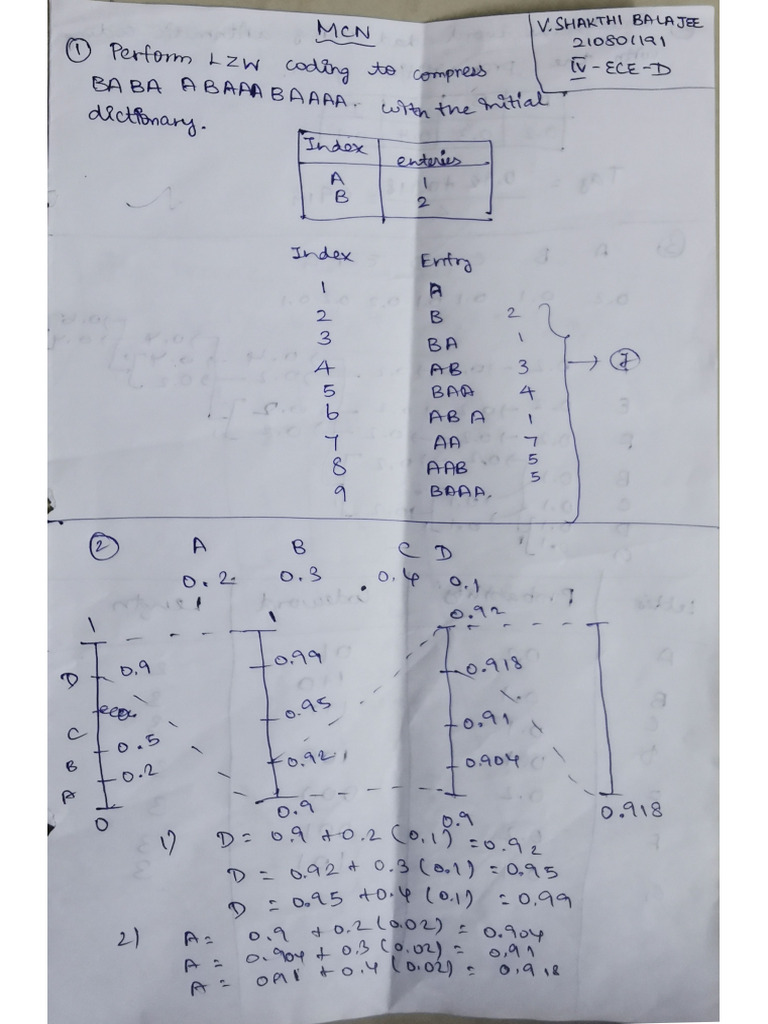 MCN
V. SHAKTHI BALAJEE
210801191
IV - ECE - D
① Perform LZW coding to compress
BABA ABAAABAAAA. with the initial
dictionary.
Index enteries
A 1
B 2
Index Entry
1 A
2 B 2
3 BA 1
4 AB 3
5 BAA 4
6 ABA 1
7 AA 7
8 AAB 5
9 BAAA. 5
→ ⑦
② A B C D
0.2 0.3 0.4 0.1
1 1 0.92
D 0.9 0.99 0.918
0.95 0.91
C 0.5 0.92 0.904
B 0.2
A
0 0.9 0.9 0.918
1) D = 0.9 + 0.2 (0.1) = 0.92
D = 0.92 + 0.3 (0.1) = 0.95
D = 0.95 + 0.4 (0.1) = 0.99
2) A = 0.9 + 0.2 (0.02) = 0.904
A = 0.904 + 0.3 (0.02) = 0.91
A = 0.91 + 0.4 (0.02) = 0.918